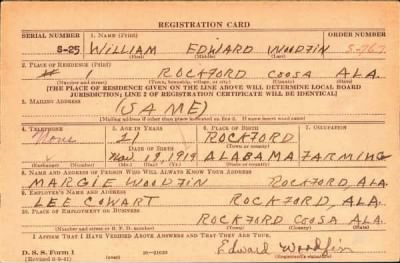 REGISTRATION CARD
SERIAL NUMBER 1. NAME (Print) ORDER NUMBER
S-25 WILLIAM EDWARD WOODFIN S-767
(First) (Middle) (Last)
2. PLACE OF RESIDENCE (Print)
# 1 ROCKFORD COOSA ALA.
(Number and street) (Town, township, village, or city) (County) (State)
[THE PLACE OF RESIDENCE GIVEN ON THE LINE ABOVE WILL DETERMINE LOCAL BOARD
JURISDICTION; LINE 2 OF REGISTRATION CERTIFICATE WILL BE IDENTICAL]
3. MAILING ADDRESS
(SAME)
[Mailing address if other than place indicated on line 2. If same insert word same]
4. TELEPHONE 5. AGE IN YEARS 6. PLACE OF BIRTH 7. OCCUPATION
None 21 ROCKFORD
(Town or county)
Nov. 19, 1919 ALABAMA FARMING
(Exchange) (Number) (Mo.) (Day) (Yr.) (State or country)
8. NAME AND ADDRESS OF PERSON WHO WILL ALWAYS KNOW YOUR ADDRESS
MARGIE WOODFIN ROCKFORD, ALA.
9. EMPLOYER'S NAME AND ADDRESS
LEE COWART ROCKFORD, ALA.
10. PLACE OF EMPLOYMENT OR BUSINESS
ROCKFORD COOSA ALA.
(Number and street or R. F. D. number) (Town) (County) (State)
I AFFIRM THAT I HAVE VERIFIED ABOVE ANSWERS AND THAT THEY ARE TRUE.
D. S. S. Form 1 Edward Woodfin
(Registrant's signature)